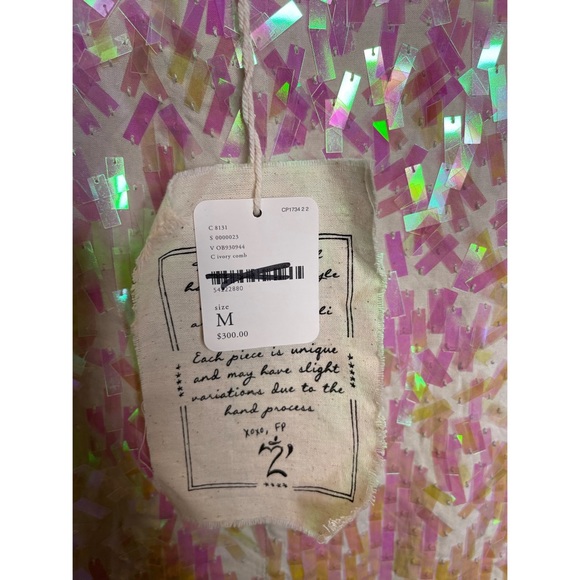 CP1734 2 2
C 8131
S 0000023
V OB930944
C ivory comb
54222880
size
M
$300.00
Each piece is unique
and may have slight
variations due to the
hand process
xoxo, FP